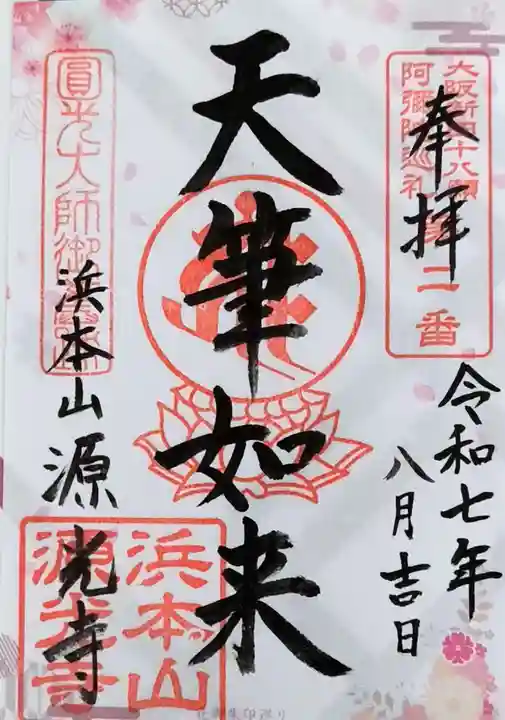 奉拝
大阪新四十八願
阿彌陀巡礼
第二番
令和七年
八月吉日
天筆如来
圓光大師御舊跡
浜本山源光寺
浜本山
源光寺